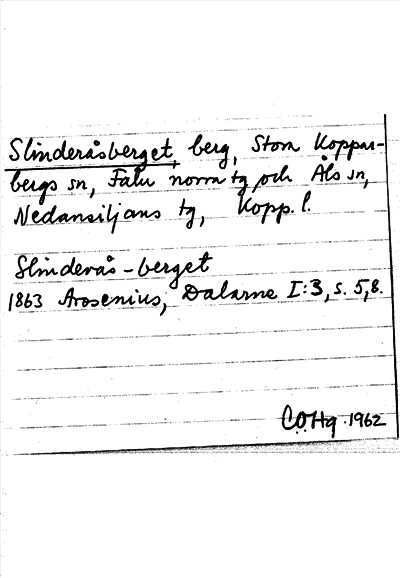 Slinderåsberget, berg, Stora Koppar-
bergs sn, Falu norra tg och Åls sn,
Nedansiljans tg, Kopp. l.
Slinderås-berget
1863 Arosenius, Dalarne I:3, s. 5,8.
C.O.Hg. 1962